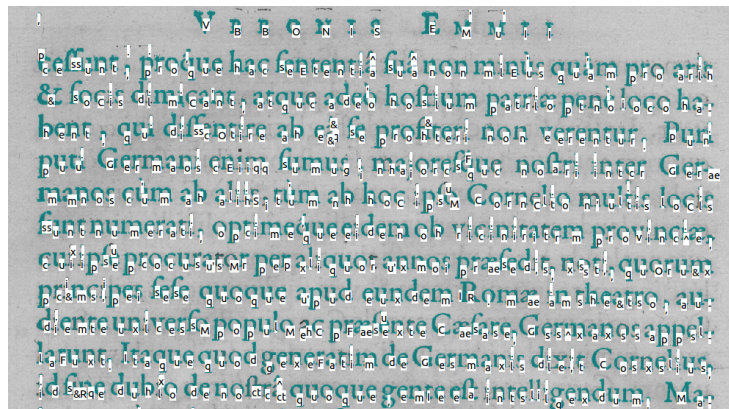 VBBONIS EMMII
cessunt, proque hac sententiâ suâ non minus quàm pro aris
& focis dimicant, atque adeò hostium patriæ penè loco ha-
bent, qui dissentire ab eâ se profiteri non verentur. Puri
puti Germani enim sumus, majoresque nostri inter Ger-
manos cùm ab aliis, tùm ab hoc ipso Cornelio multis locis
sunt numerati, optimeque eidem ob vicinitatem provinciæ,
cui ipse procurator per aliquot annos præsedit, noti, quorum
principes sese quoque apud eundem Romæ in theatro, au-
diente universo populo ac præsente Cæsare, Germanos appel-
larunt. Itaque quod generatim de Germanis dixit Cornelius,
id sine dubio de nostrâ quoque gente est intelligendum. Ma-